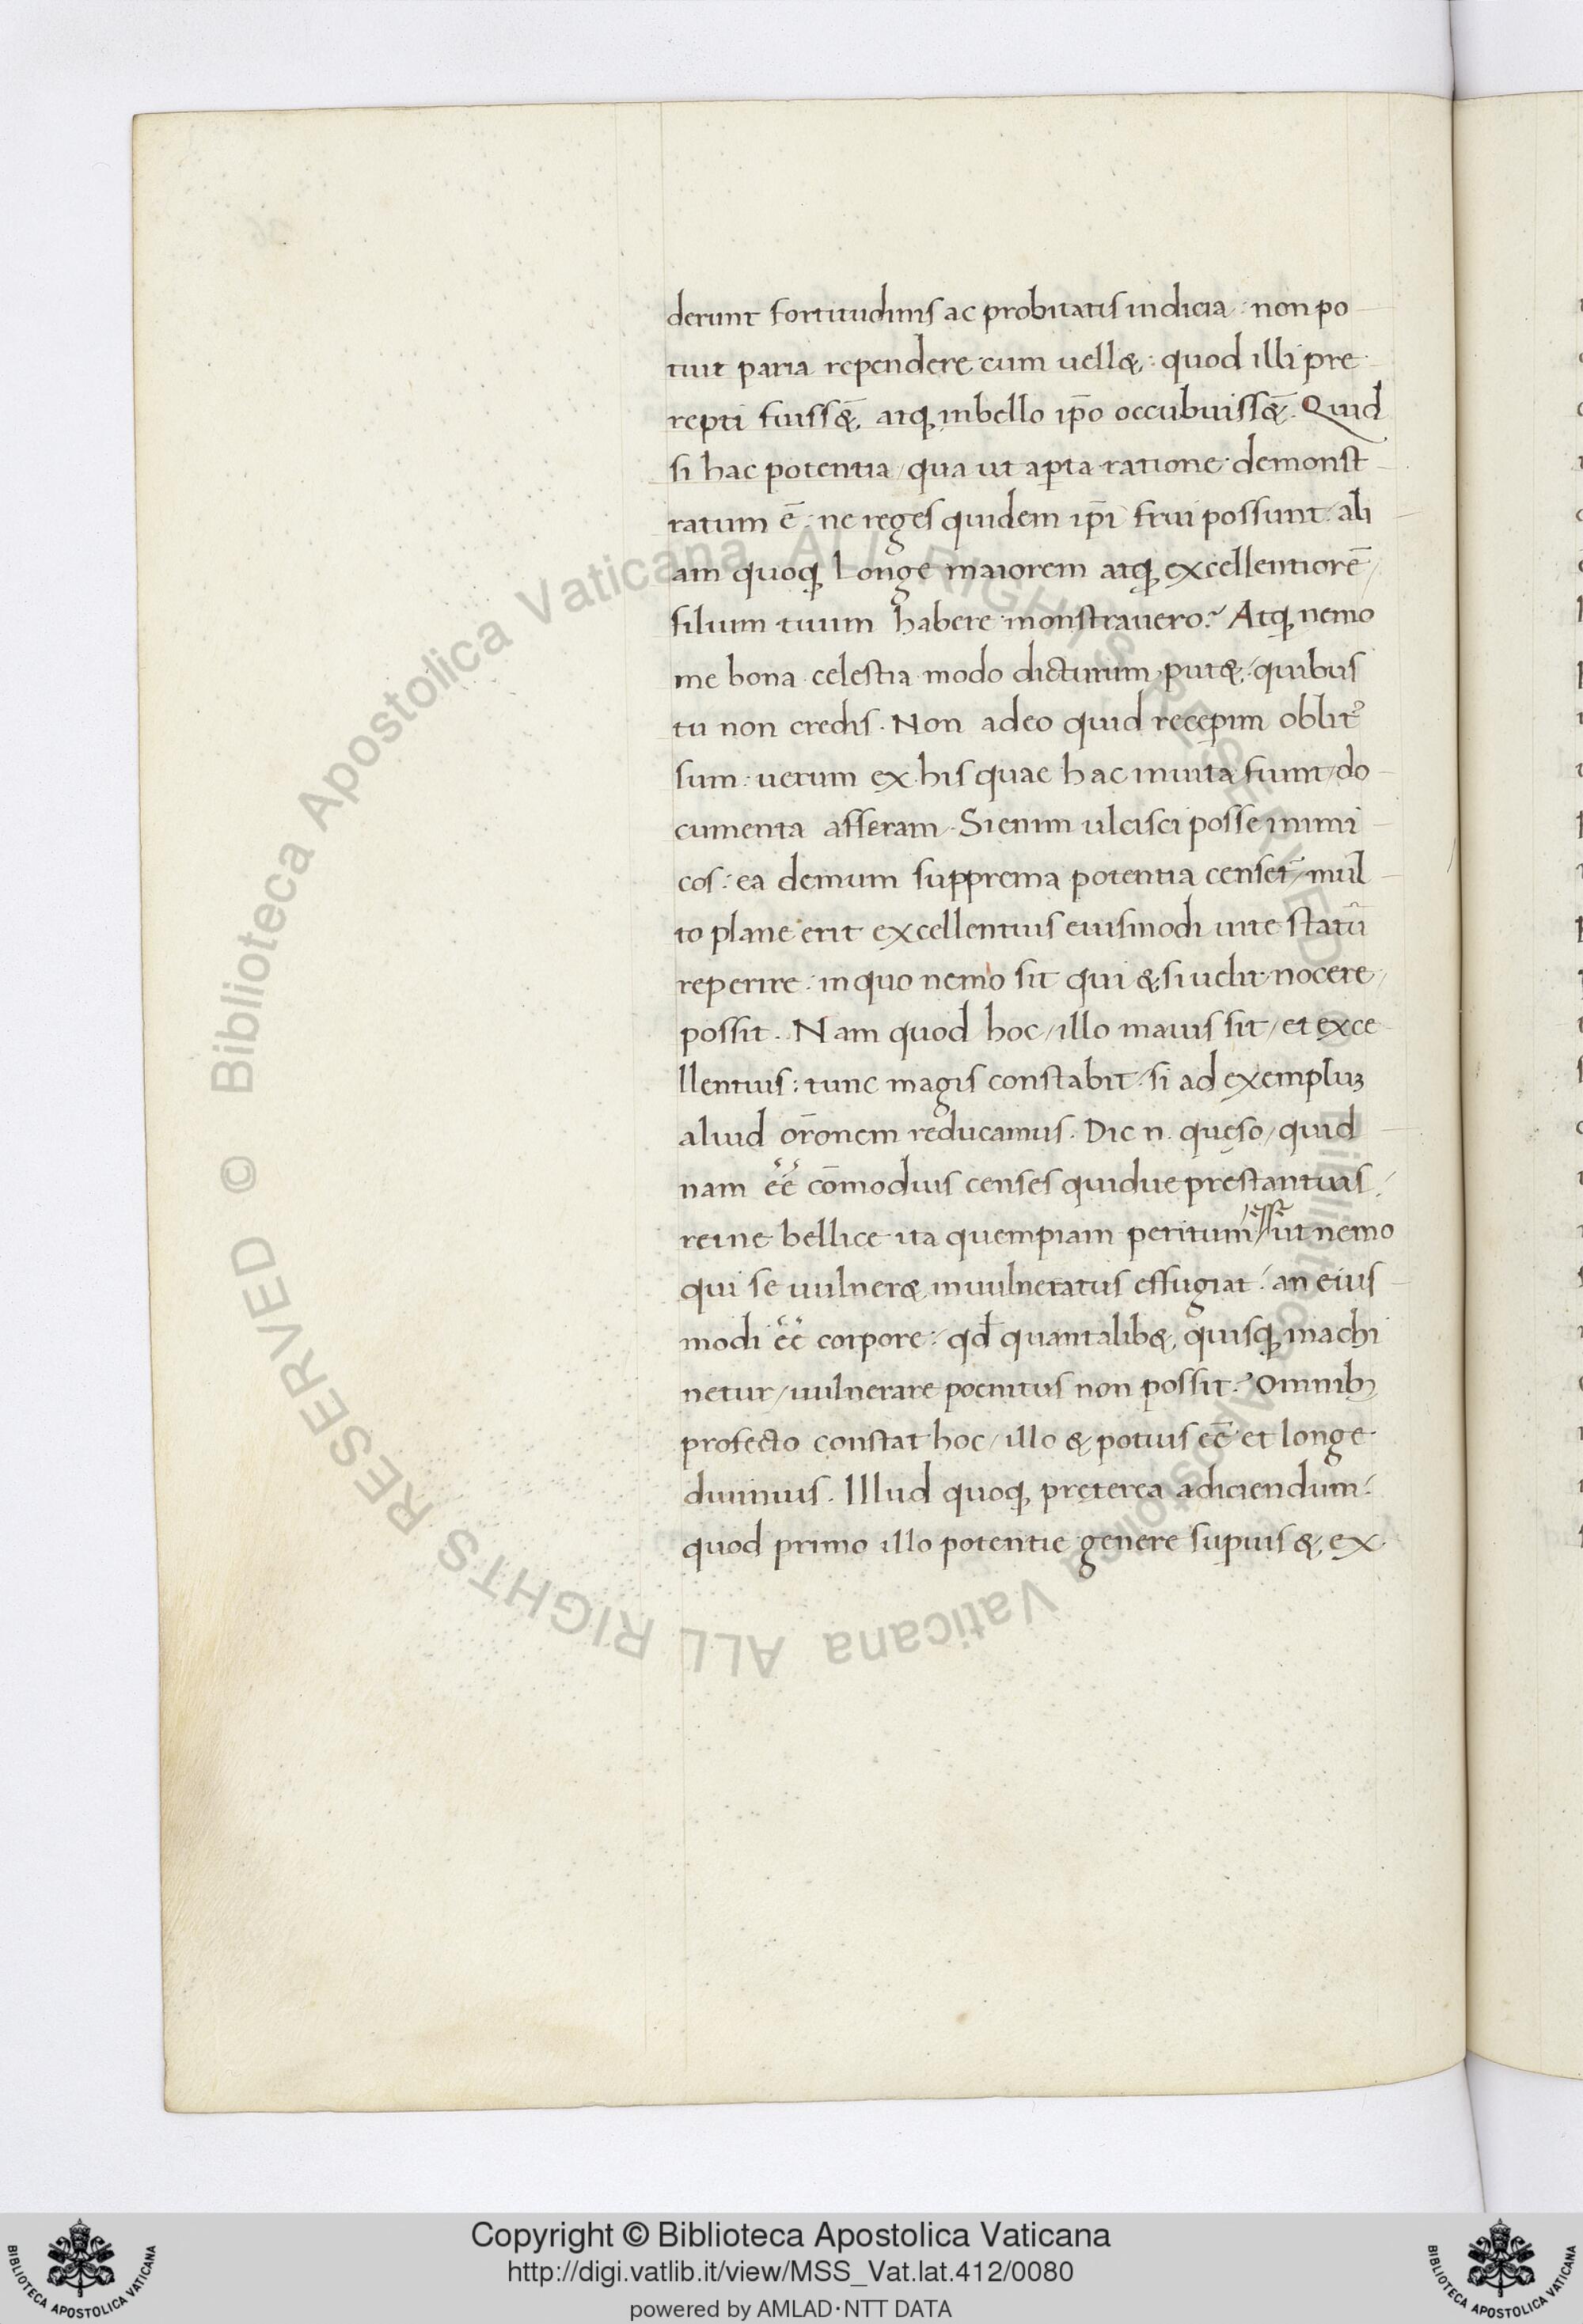 derunt fortitudinis ac probitatis indicia : non po
tuit paria rependere cum uell&, : quod illi pre
repti fuiss&̄, atq; in bello ip̄o occubuiss&̄. Quid
si hac potentia / qua ut apta ratione demonst
ratum ē : ne reges quidem ip̄i frui possunt : ali
am quoq; longe maiorem atq; excellentiorē /
filium tuum habere monstrauero? Atq; nemo
me bona celestia modo dicturum put&, : quibus
tu non credis. Non adeo quid receperim oblitꝰ
sum : uerum ex his quae hac in uita sunt / do
cumenta afferam. Si enim ulcisci posse inimi
cos : ea demum supprema potentia censet̄ / mul
to plane erit excellentius eiusmodi uite statū
reperire : in quo nemo sit qui & si uelit nocere /
possit. Nam quod hoc / illo maius sit / et exce
llentius : tunc magis constabit / si ad exempluꝫ
aliud or̄onem reducamus. Dic n. quęso / quid
nam eē cōmodius censes quidue prestantius /
rei ne bellice ita quempiam peritum esse / ut nemo
qui se uulner& inuulneratus effugiat : an eius
modi eē corpore : qd̄ quantalib&, quisq; machi
netur / uulnerare poenitus non possit? Omnibꝫ
profecto constat hoc / illo & potius eē et longe
diuinius. Illud quoq; pręterea adiciendum :
quod primo illo potentie genere supius &, ex
Copyright © Biblioteca Apostolica Vaticana
http://digi.vatlib.it/view/MSS_Vat.lat.412/0080
powered by AMLAD·NTT DATA
BIBLIOTECA APOSTOLICA VATICANA
BIBLIOTECA APOSTOLICA VATICANA
© Biblioteca Apostolica Vaticana ALL RIGHTS RESERVED © Biblioteca Apostolica Vaticana ALL RIGHTS RESERVED